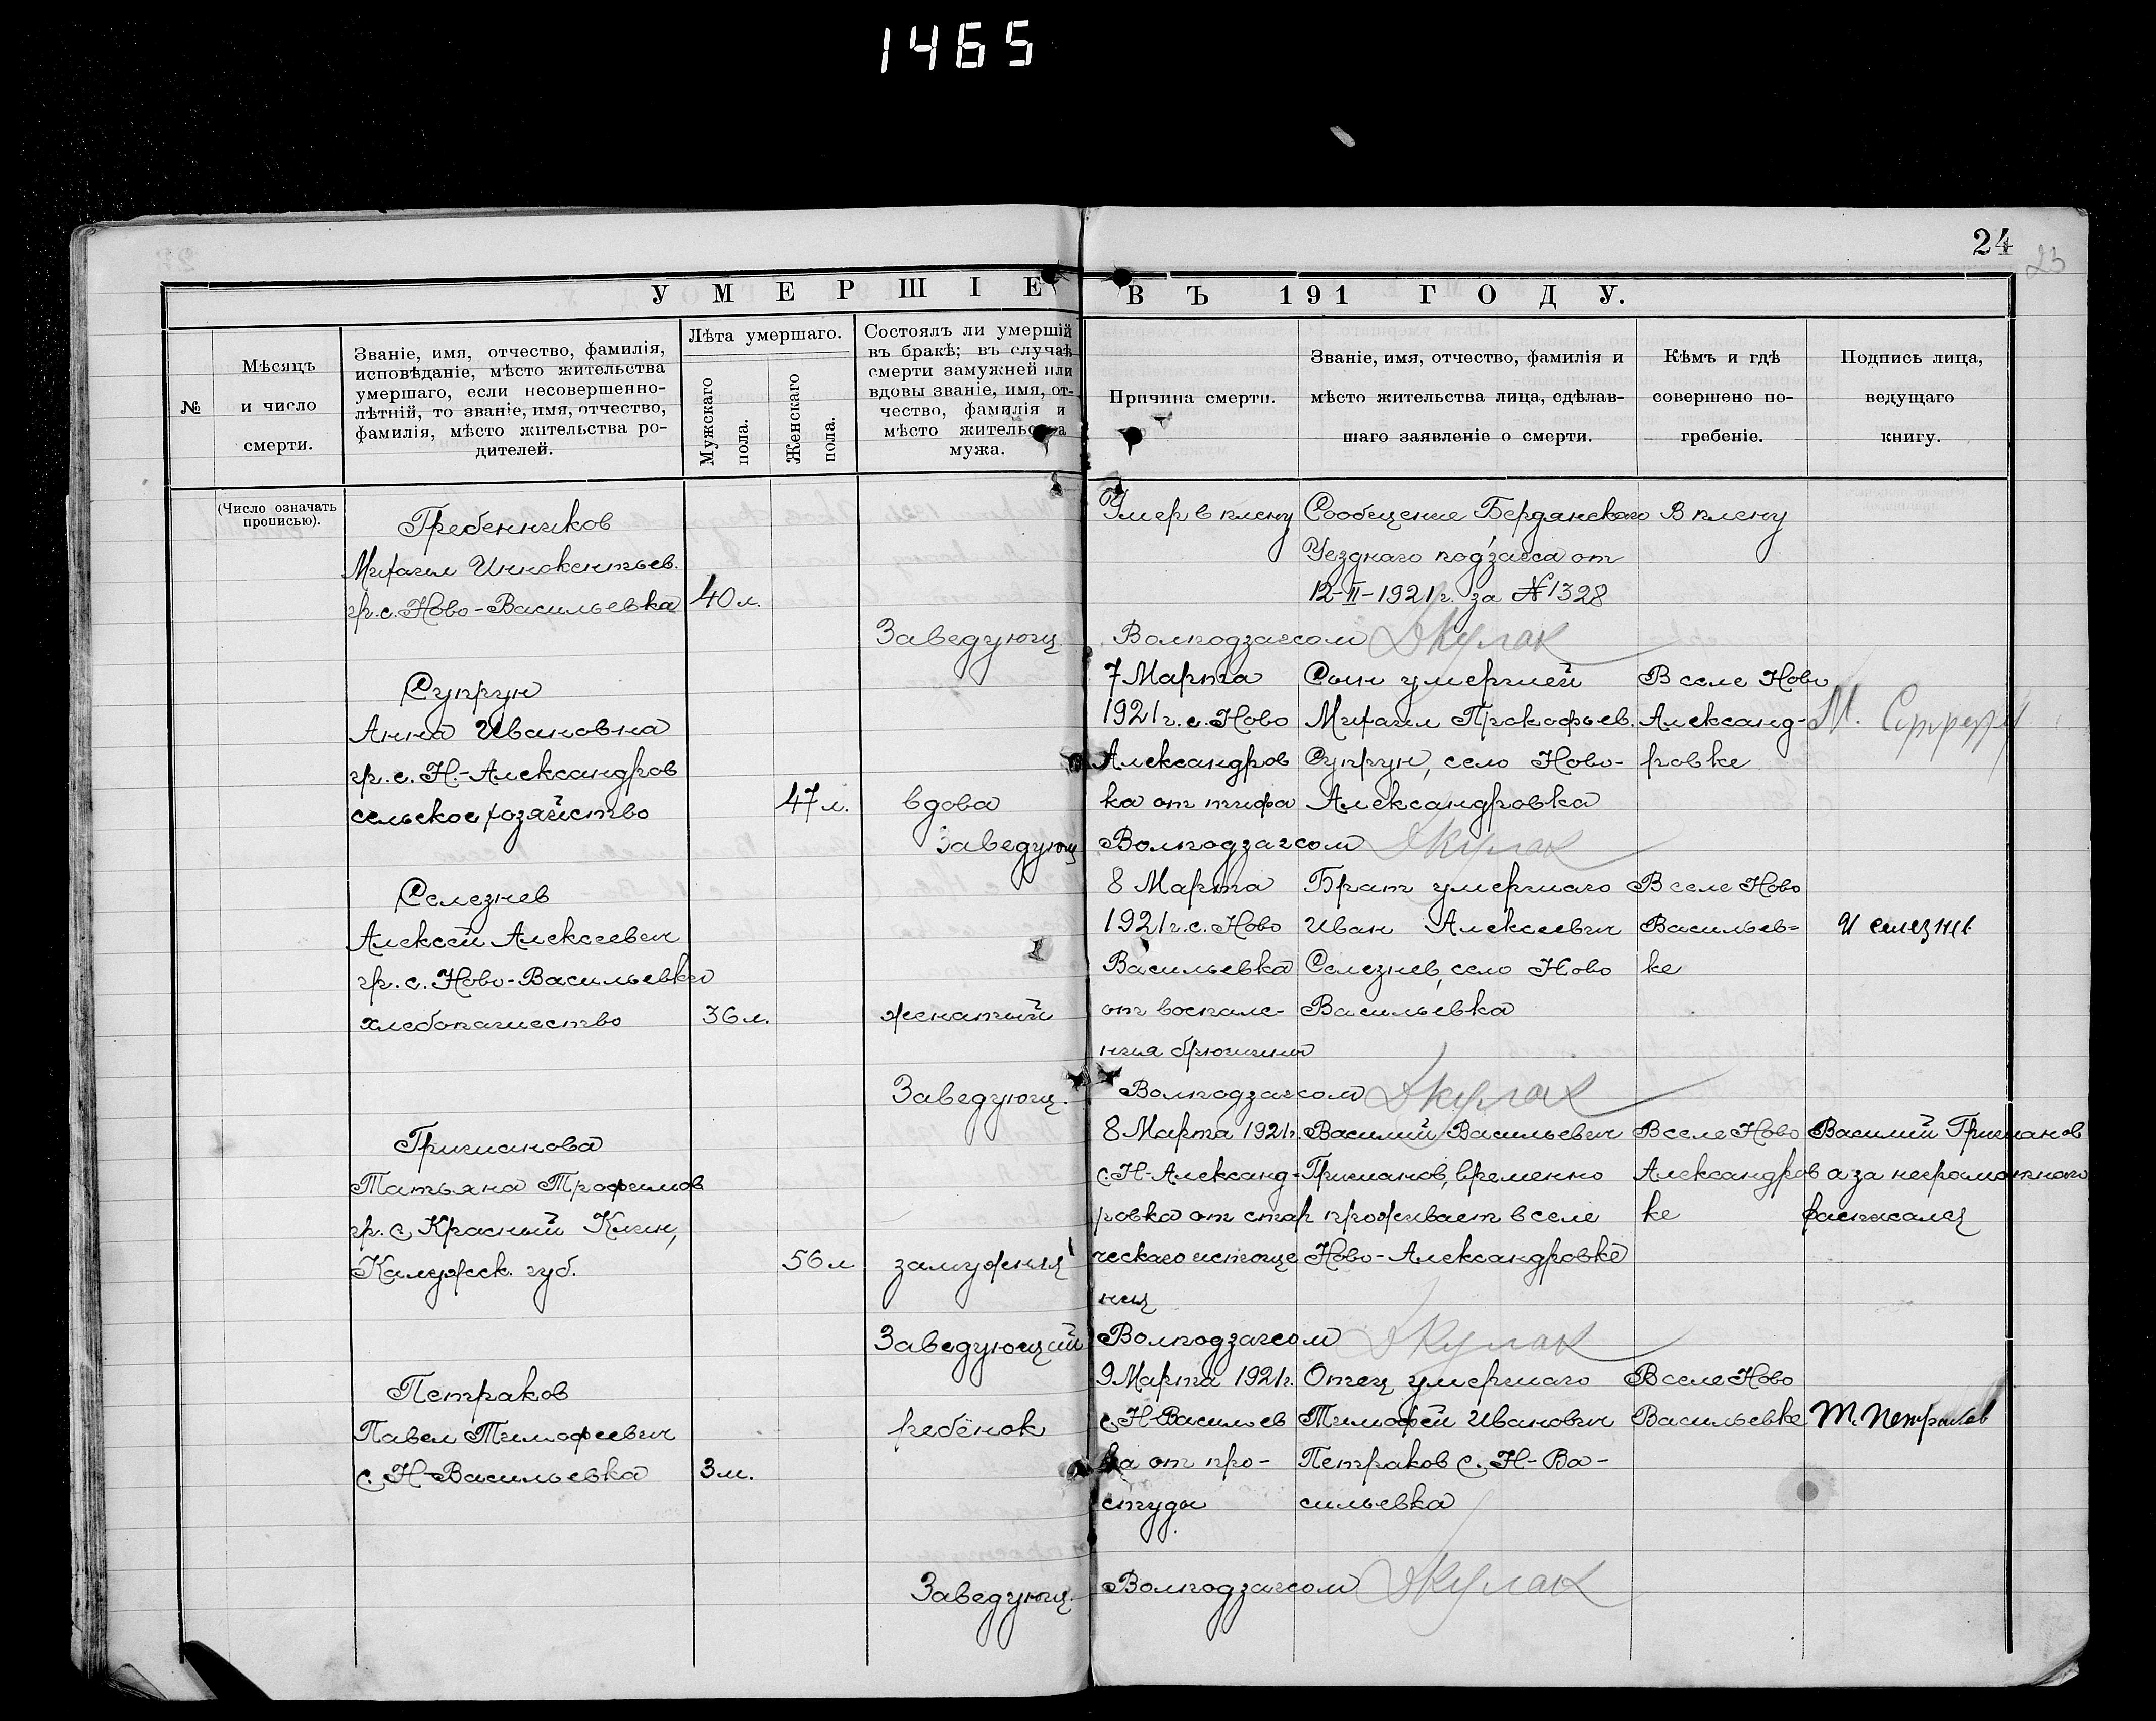 1465
24
23
УМЕРШІЕ ВЪ 191 ГОДУ.
№
Мѣсяцъ
и число
смерти.
Званіе, имя, отчество, фамилія,
исповѣданіе, мѣсто жительства
умершаго, если несовершенно-
лѣтній, то званіе, имя, отчество,
фамилія, мѣсто жительства ро-
дителей.
Лѣта умершаго.
Мужскаго
пола.
Женскаго
пола.
Состоялъ ли умершій
въ бракѣ; въ случаѣ
смерти замужней или
вдовы званіе, имя, от-
чество, фамилія и
мѣсто жительства
мужа.
Причина смерти.
Званіе, имя, отчество, фамилія и
мѣсто жительства лица, сдѣлав-
шаго заявленіе о смерти.
Кѣмъ и гдѣ
совершено по-
гребеніе.
Подпись лица,
ведущаго
книгу.
(Число означать
прописью).
Гребенников
Михаил Иннокентьев.
гр. с. Ново-Васильевка
40 л.
Умер в плену
Сообщение Бердянскаго
Уезднаго подзагса от
12-II-1921 г. за №1328
В плену
Заведующ. Волподзагсом Дкулак
Супрун
Анна Ивановна
гр. с. Н.-Александров
сельское хозяйство
47 л.
вдова
7 Марта
1921 г. с. Ново
Александров
ка от тифа
Сын умершей
Михаил Прокофьев.
Супрун, село Ново-
Александровка
В селе Ново
Александ-
ровке
М. Супрун
Заведующ Волподзагсом Дкулак
Селезнев
Алексей Алексеевич
гр. с. Ново-Васильевка
хлебопашество
36 л.
женатый
8 Марта
1921 г. с. Ново
Васильевка
от воспале-
ния брюшины
Брат умершаго
Иван Алексеевич
Селезнев, село Ново
Васильевка
В селе Ново
Васильев-
ке
И селезне
Заведующ. Волподзагсом Дкулак
Гришанова
Татьяна Трофимов
гр. с Красный Клин,
Калужск. губ.
56 л
замужняя
8 Марта 1921 г.
с. Н-Александ-
ровка от стар
ческаго истоще
ния
Василий Васильевич
Гришанов, временно
проживает в селе
Ново-Александровке
В селе Ново
Александров
ке
Василий Гришанов
а за неграмотнаго
расписался
Заведующий Волподзагсом Дкулак
Петраков
Павел Тимофеевич
с. Н-Васильевка
3 м.
ребёнок
9 Марта 1921 г.
с. Н-Васильев
ка от про-
студы
Отец умершаго
Тимофей Иванович
Петраков с. Н-Ва-
сильевка
В селе Ново
Васильевке
Т. Петраков
Заведующ. Волподзагсом Дкулак